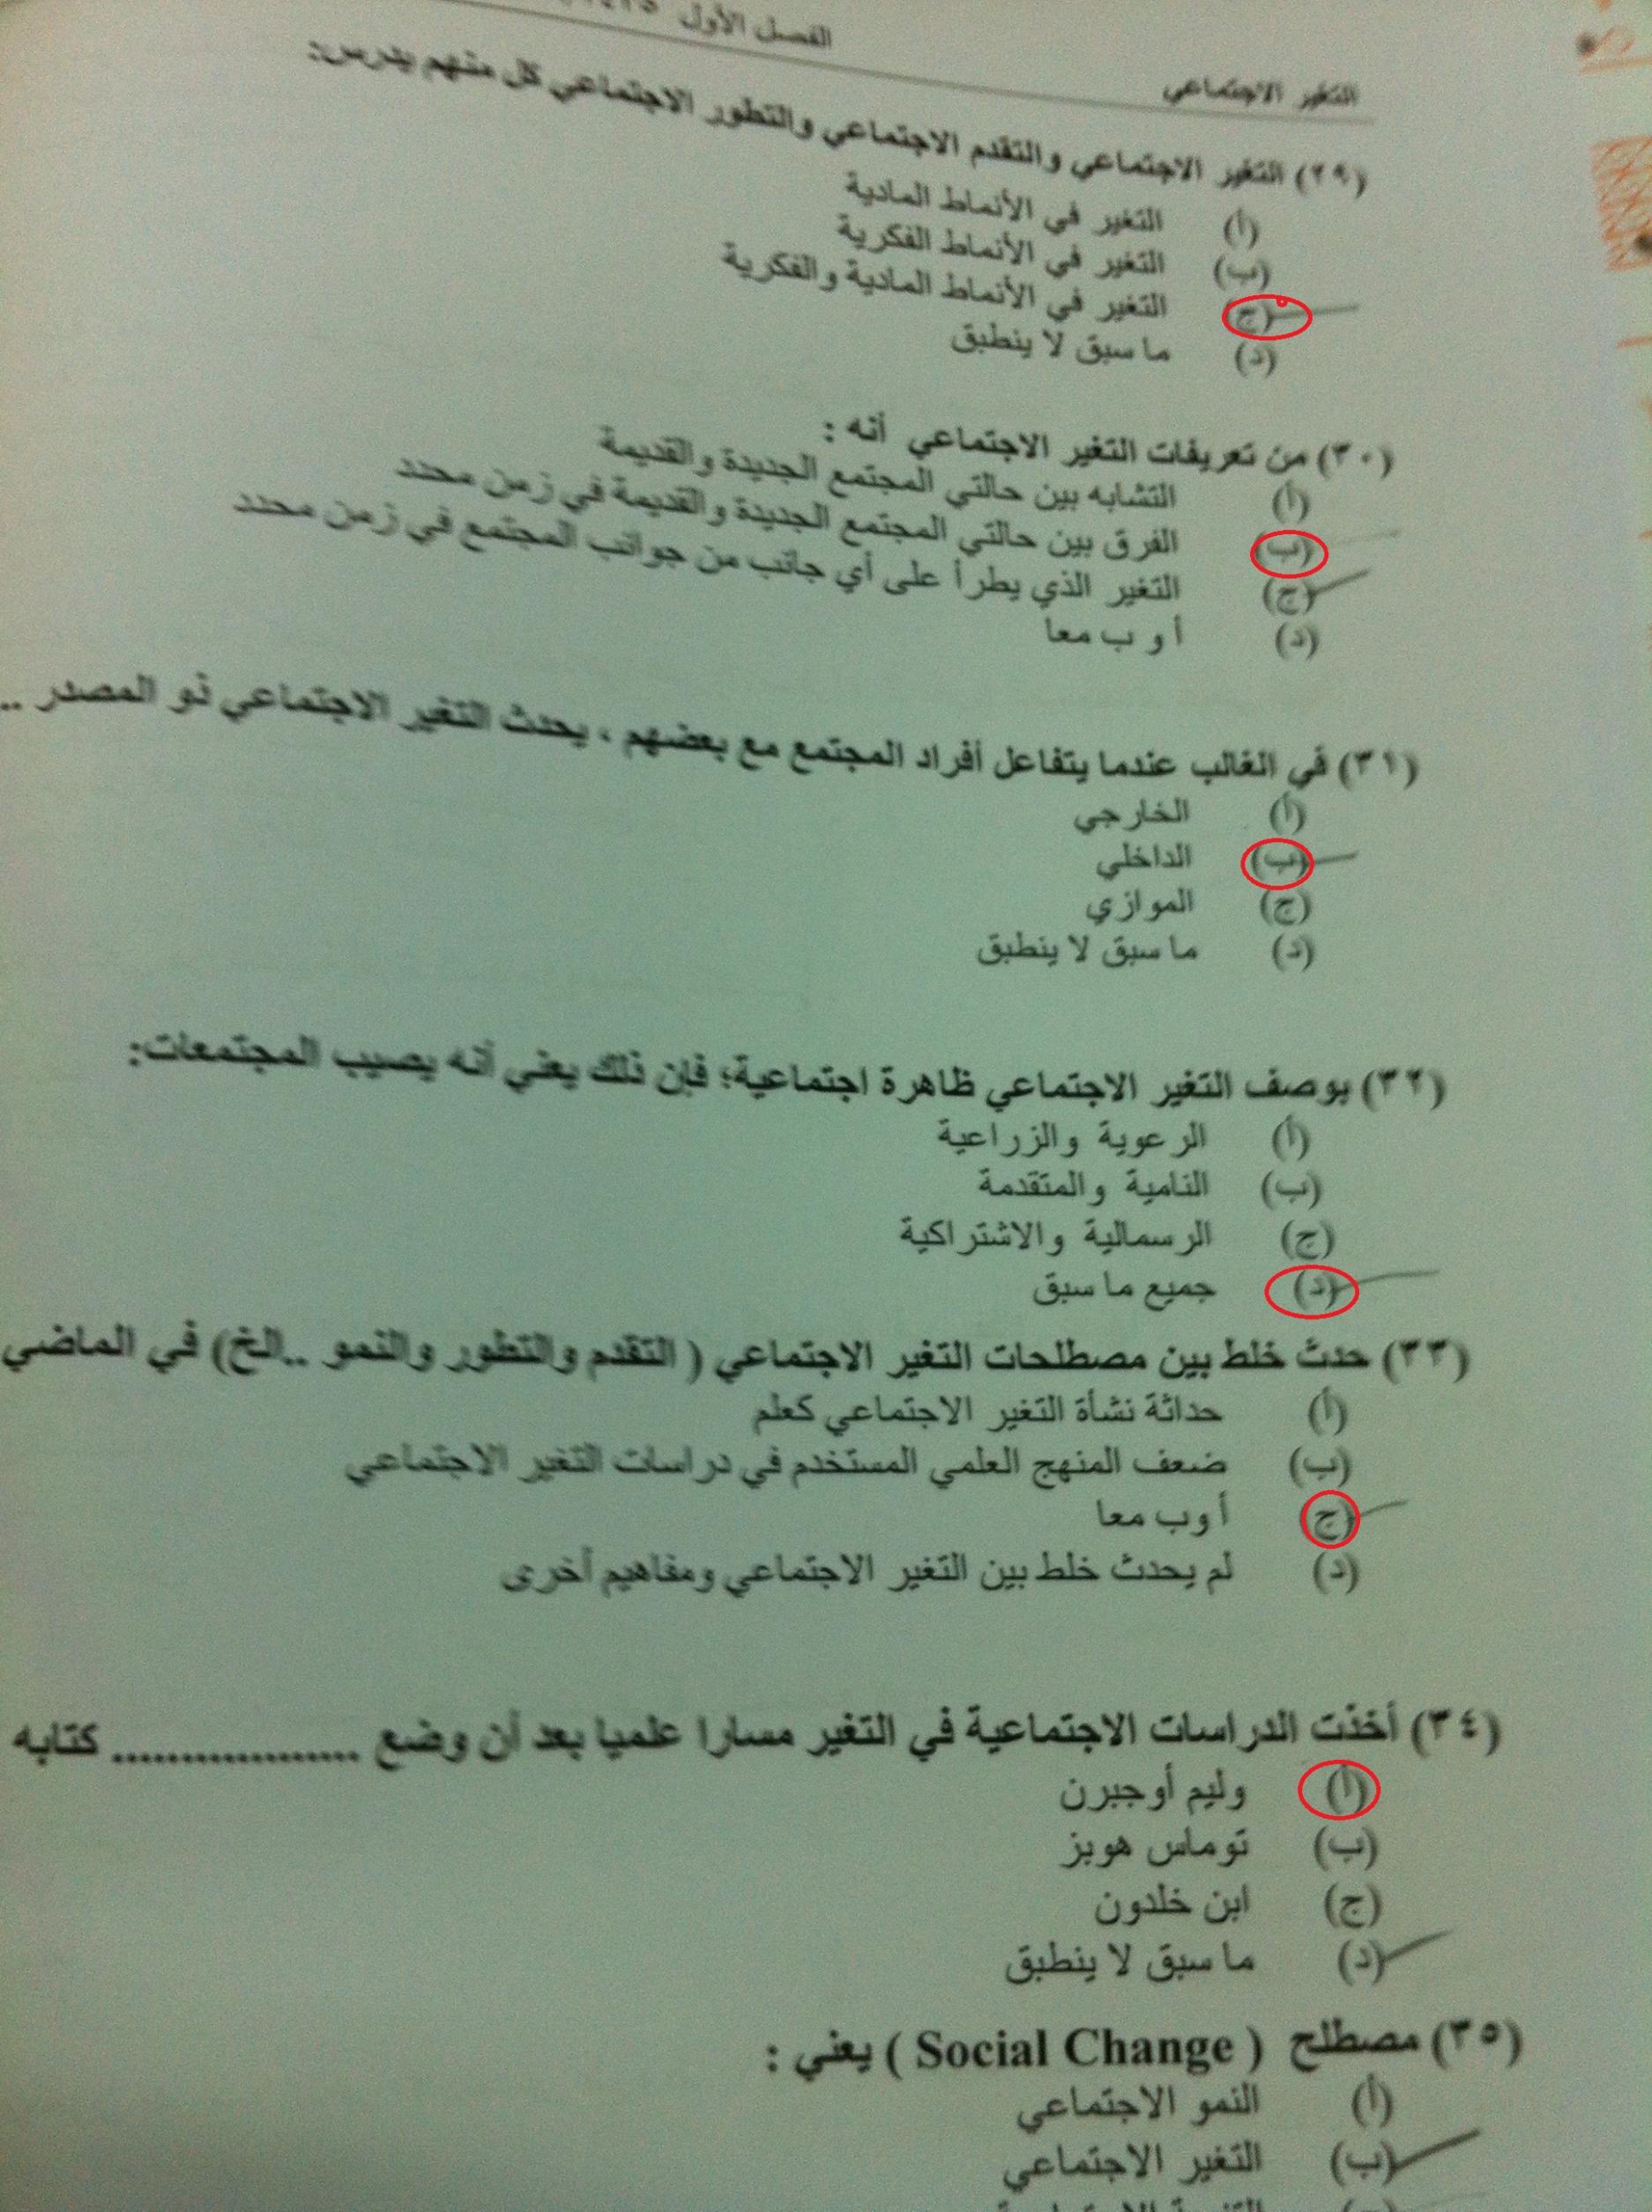 الفصل الأول
التغير الاجتماعي
(٢٩) التغير الاجتماعي والتقدم الاجتماعي والتطور الاجتماعي كل منهم يدرس:
(أ) التغير في الأنماط المادية
(ب) التغير في الأنماط الفكرية
(ج) التغير في الأنماط المادية والفكرية
(د) ما سبق لا ينطبق
(٣٠) من تعريفات التغير الاجتماعي أنه :
(أ) التشابه بين حالتي المجتمع الجديدة والقديمة
(ب) الفرق بين حالتي المجتمع الجديدة والقديمة في زمن محدد
(ج) التغير الذي يطرأ على أي جانب من جوانب المجتمع في زمن محدد
(د) أ و ب معا
(٣١) في الغالب عندما يتفاعل أفراد المجتمع مع بعضهم ، يحدث التغير الاجتماعي ذو المصدر ..
(أ) الخارجي
(ب) الداخلي
(ج) الموازي
(د) ما سبق لا ينطبق
(٣٢) بوصف التغير الاجتماعي ظاهرة اجتماعية؛ فإن ذلك يعني أنه يصيب المجتمعات:
(أ) الرعوية والزراعية
(ب) النامية والمتقدمة
(ج) الرسمالية والاشتراكية
(د) جميع ما سبق
(٣٣) حدث خلط بين مصطلحات التغير الاجتماعي ( التقدم والتطور والنمو ..الخ) في الماضي
(أ) حداثة نشأة التغير الاجتماعي كعلم
(ب) ضعف المنهج العلمي المستخدم في دراسات التغير الاجتماعي
(ج) أ وب معا
(د) لم يحدث خلط بين التغير الاجتماعي ومفاهيم أخرى
(٣٤) أخذت الدراسات الاجتماعية في التغير مسارا علميا بعد أن وضع .................. كتابه
(أ) وليم أوجبرن
(ب) توماس هوبز
(ج) ابن خلدون
(د) ما سبق لا ينطبق
(٣٥) مصطلح ( Social Change ) يعني :
(أ) النمو الاجتماعي
(ب) التغير الاجتماعي